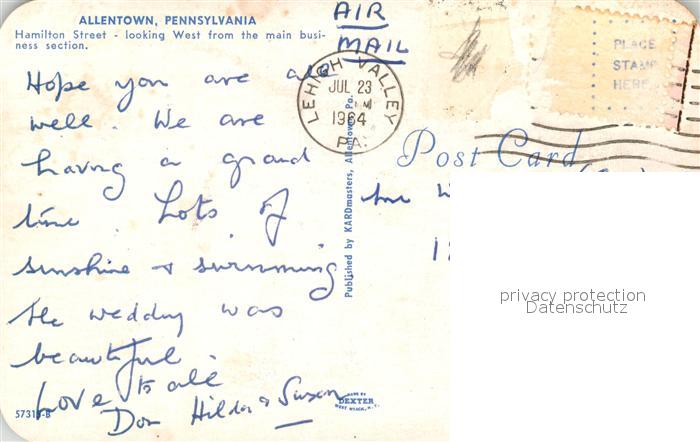 ALLENTOWN, PENNSYLVANIA
Hamilton Street - looking West from the main busi-
ness section.
AIR
MAIL
PLACE
STAMP
HERE
LEHIGH VALLEY
JUL 23
M
1964
PA.
Post Card
Hope you are all
well. We are
having a grand
time. Lots of
sunshine & swimming
The wedding was
beautiful.
Love to all
Don Hilda & Susan
Published by KARDmasters, Allentown, Pa.
privacy protection
Datenschutz
57313-B
MADE BY
DEXTER
WEST NYACK, N.Y.